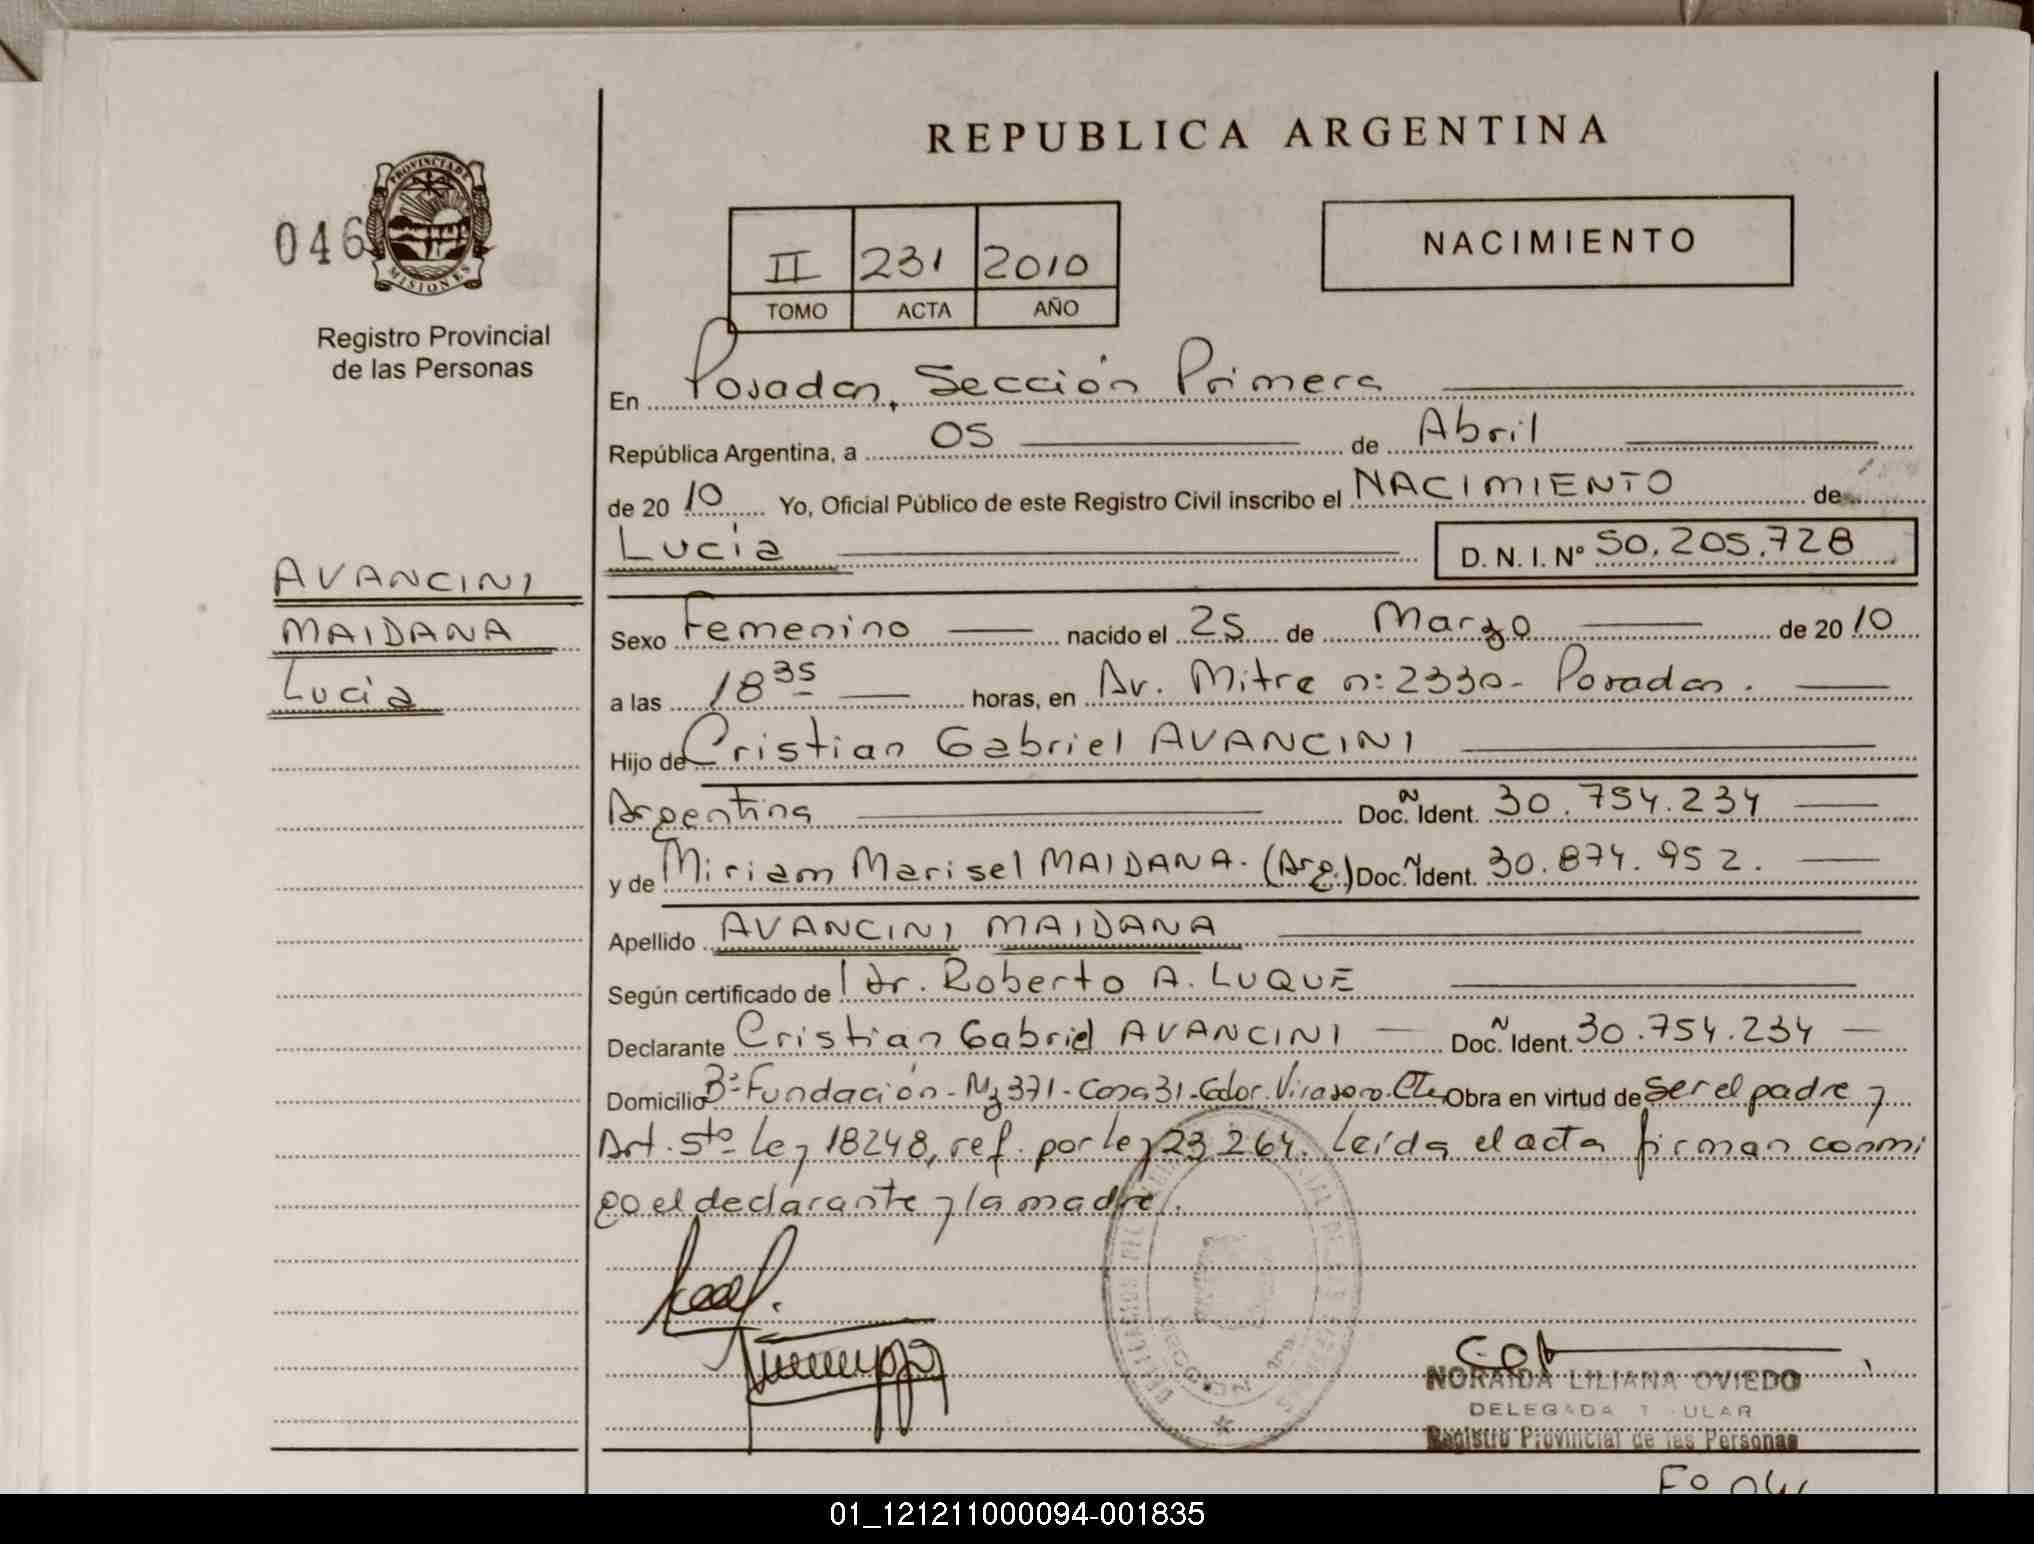 REPUBLICA ARGENTINA
PROVINCIA DE
MISIONES
046
Registro Provincial
de las Personas
II 231 2010
TOMO ACTA AÑO
NACIMIENTO
En Posadas, Sección Primera
República Argentina, a 05 de Abril
de 2010 Yo, Oficial Público de este Registro Civil inscribo el NACIMIENTO de
Lucía D. N. I. Nº 50.205.728
AVANCINI
MAIDANA
Lucía
Sexo Femenino nacido el 25 de Marzo de 2010
a las 18 35 horas, en Av. Mitre n: 2330- Posadas.
Hijo de Cristian Gabriel AVANCINI
Argentina Doc. N Ident. 30.754.234
y de Miriam Marisel MAIDANA. (Arg.) Doc. N Ident. 30.874.952.
Apellido AVANCINI MAIDANA
Según certificado de Dr. Roberto A. LUQUE
Declarante Cristian Gabriel AVANCINI Doc. N Ident. 30.754.234
Domicilio Bº Fundación - Mz 371 - Casa 31 - Gdor. Virasoro. Cte Obra en virtud de ser el padre y
Art. 5to Ley 18248, ref. por ley 23.264. Leída el acta firman conmi
go el declarante y la madre.
NORAIDA LILIANA OVIEDO
DELEGADA T ULAR
Registro Provincial de las Personas
Fº 046
01_121211000094-001835